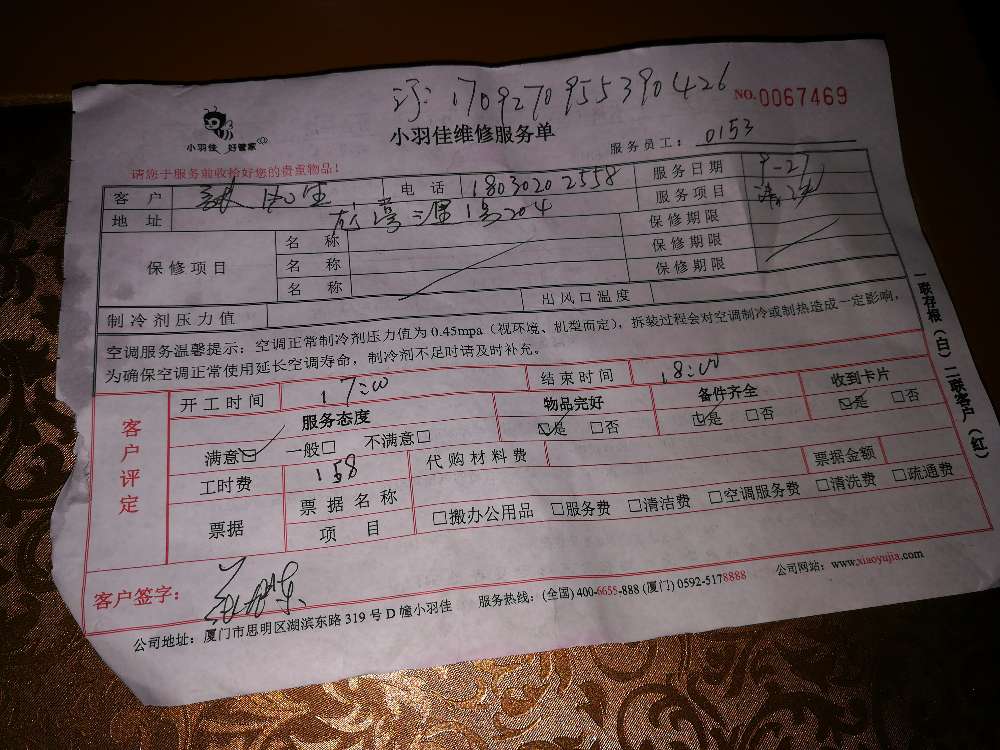 1709270955390426
NO.0067469
小羽佳 好管家
小羽佳维修服务单
服务员工： 0153
请您于服务前收拾好您的贵重物品！
客 户 电 话 18030202558 服务日期 9-27
地 址 1号204 服务项目 清洗
保修项目 名 称 保修期限
名 称 保修期限
名 称 保修期限
制冷剂压力值 出风口温度
空调服务温馨提示：空调正常制冷剂压力值为0.45mpa（视环境、机型而定），拆装过程会对空调制冷或制热造成一定影响，
为确保空调正常使用延长空调寿命，制冷剂不足时请及时补充。
客户评定
开工时间 17:00 结束时间 18:00
服务态度 物品完好 备件齐全 收到卡片
满意□ 一般□ 不满意□ □是 □否 □是 □否 □是 □否
工时费 158 代购材料费 票据金额
票据 票据名称
项 目 □搬办公用品 □服务费 □清洁费 □空调服务费 □清洗费 □疏通费
客户签字：
公司地址：厦门市思明区湖滨东路319号D幢小羽佳 服务热线：(全国) 400-6655-888 (厦门) 0592-5178888 公司网站：www.xiaoyujia.com
一联存报（白）二联客户（红）